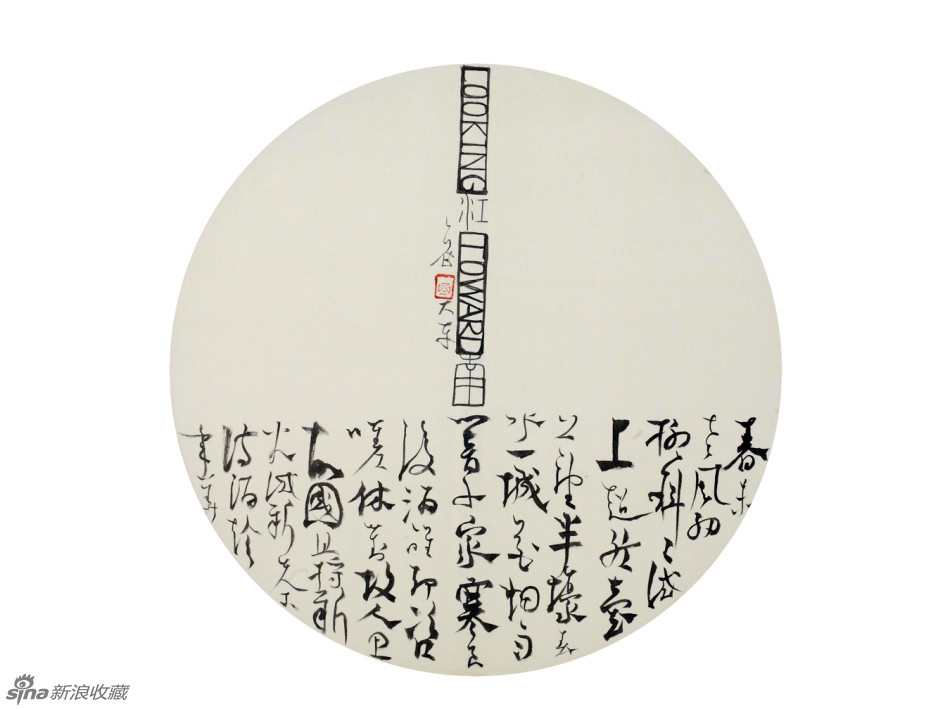 LOOKING 江 TOWARD 南
大
春未
老風細
柳斜斜試
上超然臺
上望半壕春
水一城花烟雨
暗千家寒食
後酒醒却咨
嗟休對故人思
故國且將新
火試新茶
詩酒趁
年華
sina新浪收藏